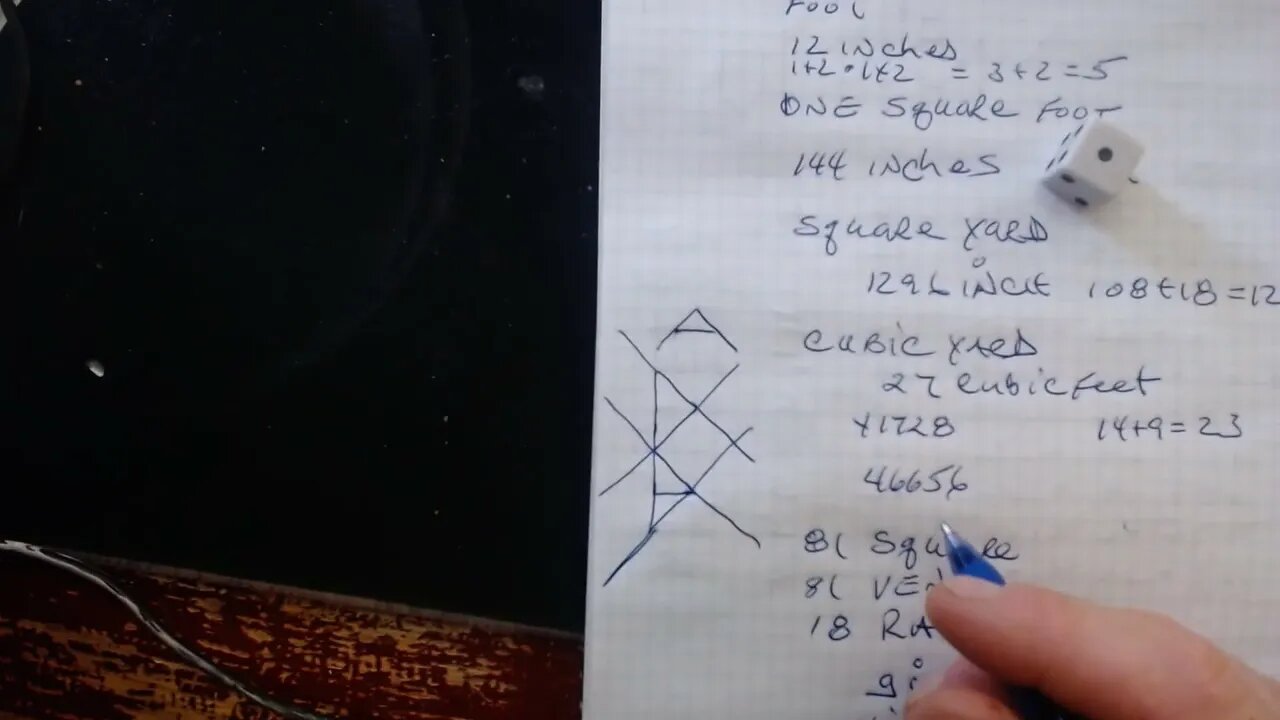 FOOT
12 inches
1+2 • 1+2 = 3+2=5
ONE Square FOOT
144 inches
Square YARD
1296 INCH 108+18=12
CUBIC YARD
27 CUBIC Feet
X1728 14+9=23
46656
81 Square
81
18